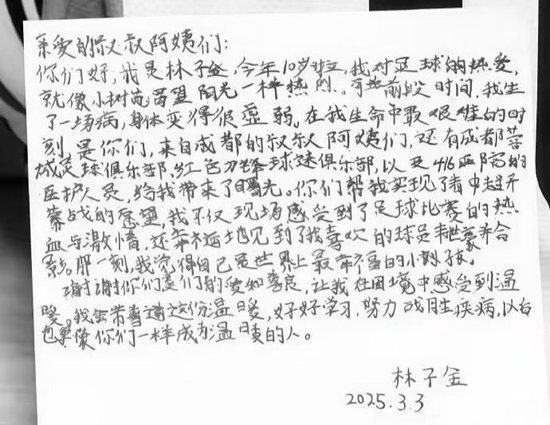 亲爱的叔叔阿姨们:
你们好,我是林子金,今年10岁,我对足球的热爱,
就像小树苗渴望阳光一样热烈。可前段时间,我生
了一场病,身体变得很虚弱。在我生命中最艰难的时
刻,是你们,来自成都的叔叔阿姨们,还有成都蓉
城足球俱乐部,红色刀锋球迷俱乐部,以及416医院的
医护人员,给我带来了曙光。你们帮我实现了看中超开
幕战的愿望,我不仅现场感受到了足球比赛的热
血与激情,还幸运地见到了我喜欢的球员韦世豪并合
影。那一刻,我觉得自己是世界上最幸福的小孩。
谢谢你们,让我在困境中感受到温
暖。我会带着这份温暖,好好学习,努力战胜疾病,以后
也像你们一样成为温暖的人。
林子金
2025.3.3